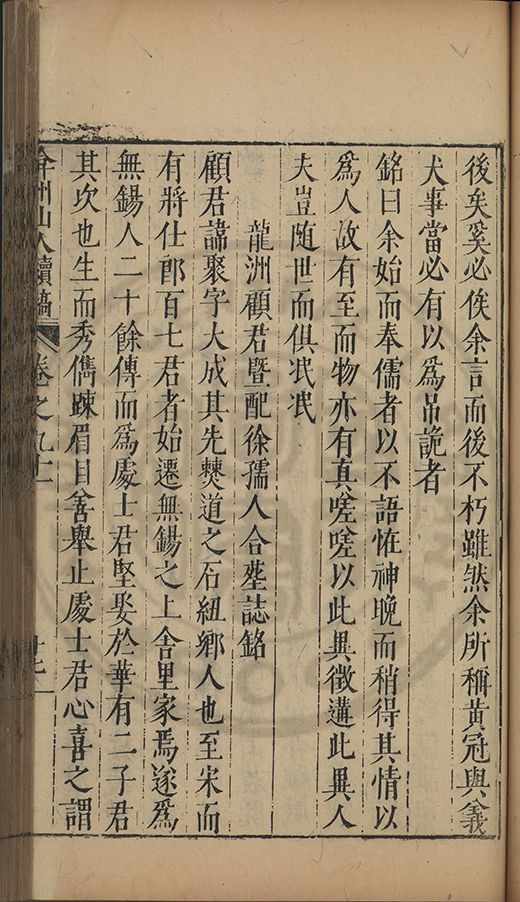 後矣奚必俟余言而後不朽雖然余所稱黃冠與義
犬事當必有以爲吊詭者
銘曰余始而奉儒者以不語恠神晚而稍得其情以
爲人故有至而物亦有真嗟嗟以此異徵遘此異人
夫豈随世而俱泯泯
龍洲顧君暨配徐孺人合塟誌銘
顧君諱聚字大成其先僰道之石紐鄉人也至宋而
有將仕郎百七君者始遷無錫之上舍里家焉遂爲
無錫人二十餘傳而爲處士君堅娶於華有二子君
其次也生而秀儁踈眉目善舉止處士君心喜之謂
弇州山人續稿 卷之九十